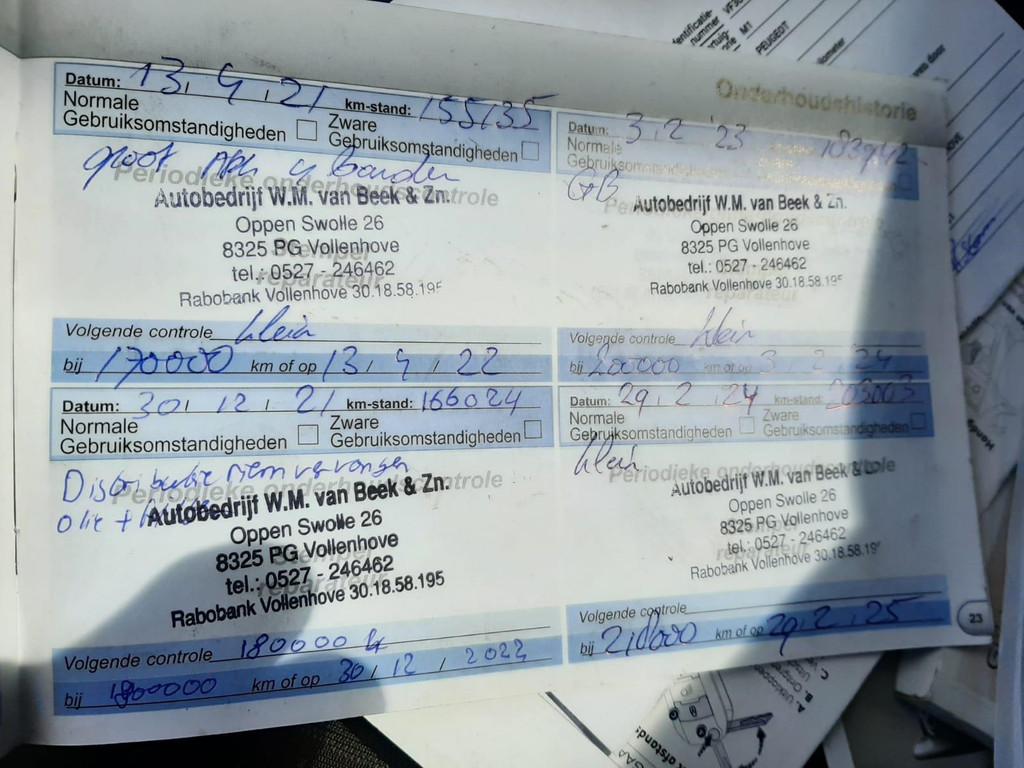 Onderhoudshistorie
Datum: 13, 4, 21 km-stand: 155135
Normale Gebruiksomstandigheden Zware Gebruiksomstandigheden
groot APK 4 banden
Periodieke onderhoudscontrole
Autobedrijf W.M. van Beek & Zn.
Oppen Swolle 26
8325 PG Vollenhove
Stempel
tel.: 0527 - 246462
reparateur
Rabobank Vollenhove 30.18.58.195
Volgende controle klein
bij 170000 km of op 13, 4, 22
Datum: 30, 12, 21 km-stand: 166024
Normale Gebruiksomstandigheden Zware Gebruiksomstandigheden
Distributie riem vervangen
Periodieke onderhoudscontrole
olie +
Autobedrijf W.M. van Beek & Zn.
Oppen Swolle 26
8325 PG Vollenhove
Stempel
tel.: 0527 - 246462
reparateur
Rabobank Vollenhove 30.18.58.195
Volgende controle 180000
bij 1800000 km of op 30, 12, 2022
Datum: 3, 2 '23
Normale Gebruiksomstandigheden
GB
Autobedrijf W.M. van Beek & Zn.
Oppen Swolle 26
8325 PG Vollenhove
tel.: 0527 - 246462
reparateur
Rabobank Vollenhove 30.18.58.195
Volgende controle klein
bij 200000 km of op 3, 2, 24
Datum: 29, 2, 24 km-stand: 205063
Normale Gebruiksomstandigheden Zware Gebruiksomstandigheden
klein
Periodieke onderhoudscontrole
Autobedrijf W.M. van Beek & Zn.
Oppen Swolle 26
8325 PG Vollenhove
Stempel
tel.: 0527 - 246462
reparateur
Rabobank Vollenhove 30.18.58.19
Volgende controle
bij 210000 km of op 29, 2, 25
23
M1
PEUGEOT